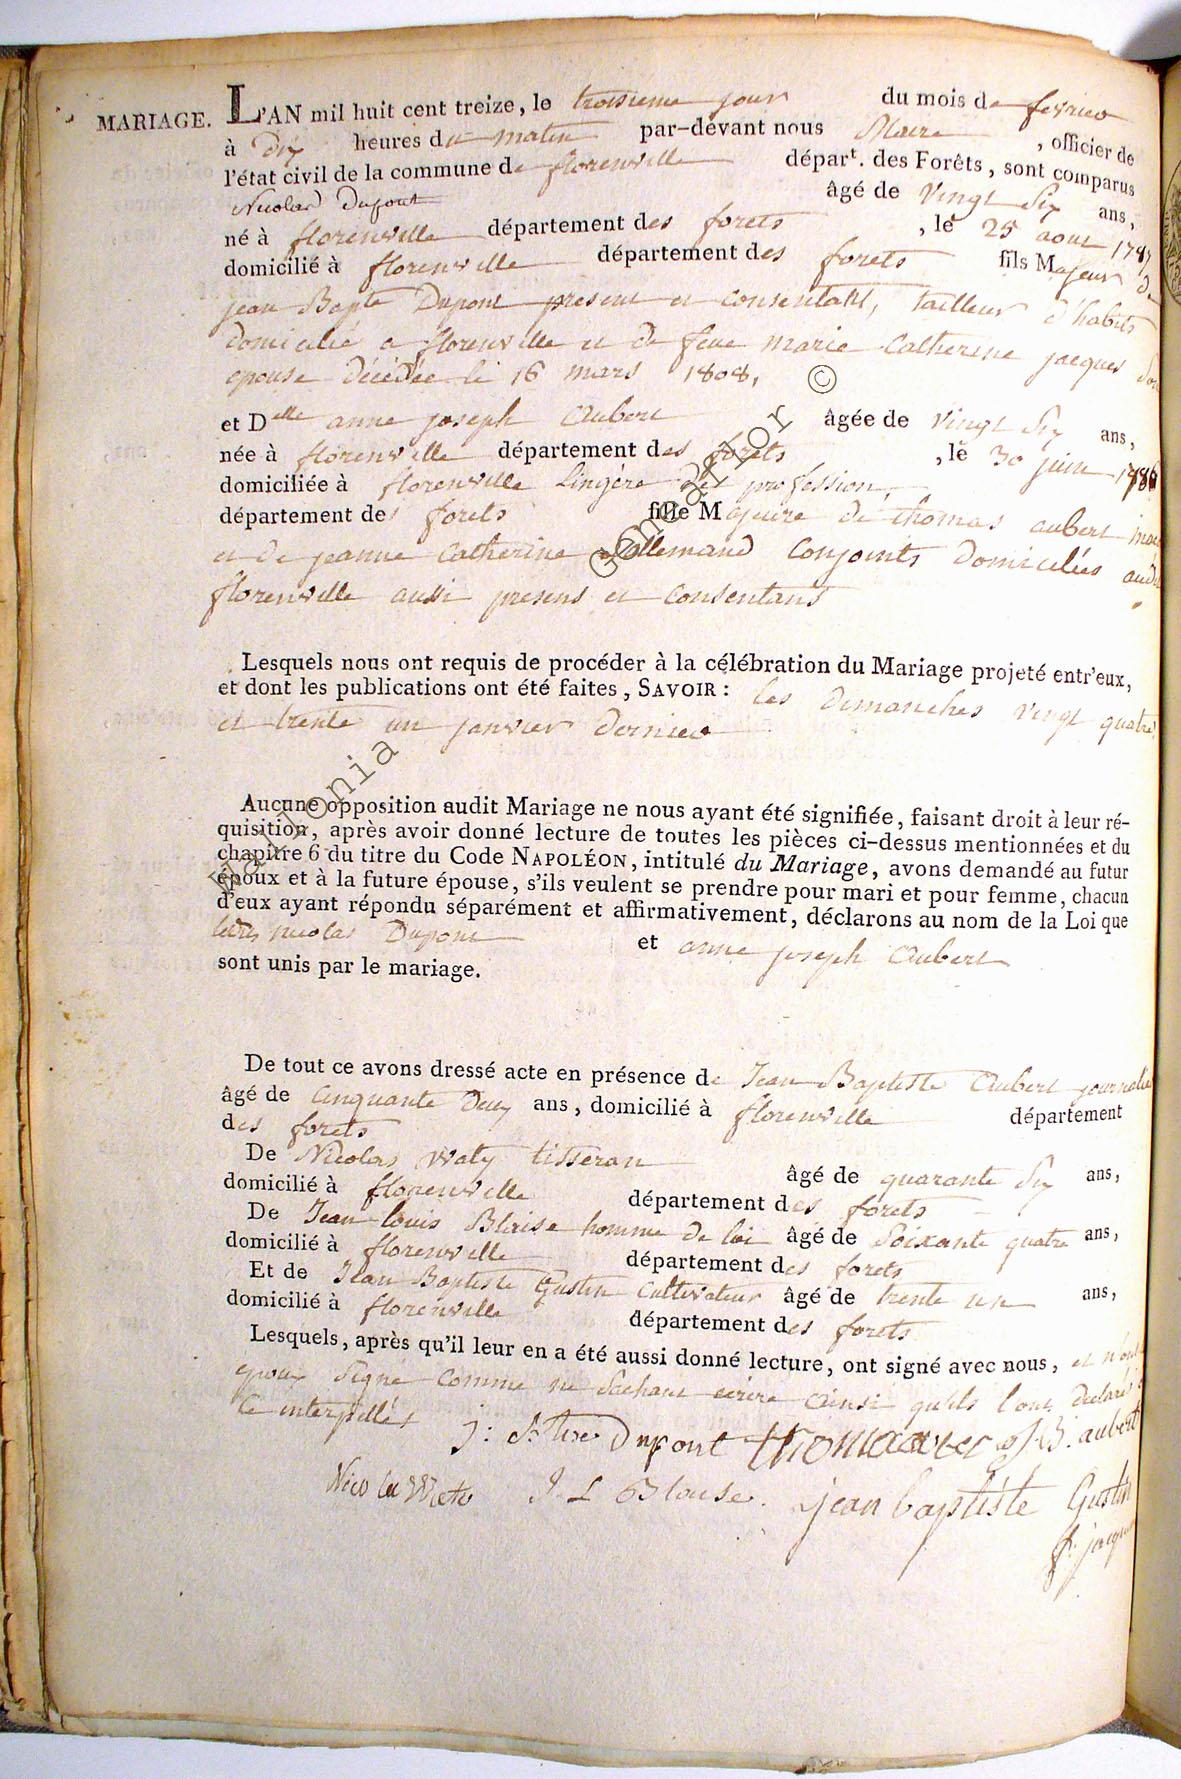 MARIAGE. L'AN mil huit cent treize, le troisieme jour du mois de fevrier
à Dix heures du matin par-devant nous Maire, officier de
l'état civil de la commune de florenville départ. des Forêts, sont comparus
Nicolas Dupont âgé de Vingt Six ans,
né à florenville département des forets, le 25 aout 1787
domicilié à florenville département des forets fils Majeur de
jean Bapte Dupont present et consentant, tailleur d'habits
domicilié a florenville et de feue marie Catherine jacques Son
epouse Décédée le 16 mars 1808,
et Delle anne joseph Aubert âgée de Vingt Six ans,
née à florenville département des forets, le 30 juin 1786
domiciliée à florenville Lingère de profession,
département des forets fille Majeure de thomas aubert
et de jeanne Catherine allemand Conjoints domiciliés audit
florenville aussi presens et Consentans
Lesquels nous ont requis de procéder à la célébration du Mariage projeté entr'eux,
et dont les publications ont été faites, SAVOIR : les dimanches vingt quatre
et trente un janvier dernier
Aucune opposition audit Mariage ne nous ayant été signifiée, faisant droit à leur ré-
quisition, après avoir donné lecture de toutes les pièces ci-dessus mentionnées et du
chapitre 6 du titre du Code NAPOLÉON, intitulé du Mariage, avons demandé au futur
époux et à la future épouse, s'ils veulent se prendre pour mari et pour femme, chacun
d'eux ayant répondu séparément et affirmativement, déclarons au nom de la Loi que
nicolas Dupont et anne joseph Aubert
sont unis par le mariage.
De tout ce avons dressé acte en présence de Jean Baptiste Aubert journalier
âgé de Cinquante Deux ans, domicilié à florenville département
des forets
De Nicolas Waty tisseran âgé de quarante Six ans,
domicilié à florenville département des forets
De Jean louis Blaise homme de loi âgé de Soixante quatre ans,
domicilié à florenville département des forets
Et de Jean Baptiste Gustin Cultivateur âgé de trente un ans,
domicilié à florenville département des forets
Lesquels, après qu'il leur en a été aussi donné lecture, ont signé avec nous, et n'ont
epoux Signé comme ne Sachant ecrire ainsi qu'ils l'ont declaré
ce interpellés
J: Dupont J.B. aubert
J. L Blaise. jean baptiste Gustin
Wallonia Genealor ©